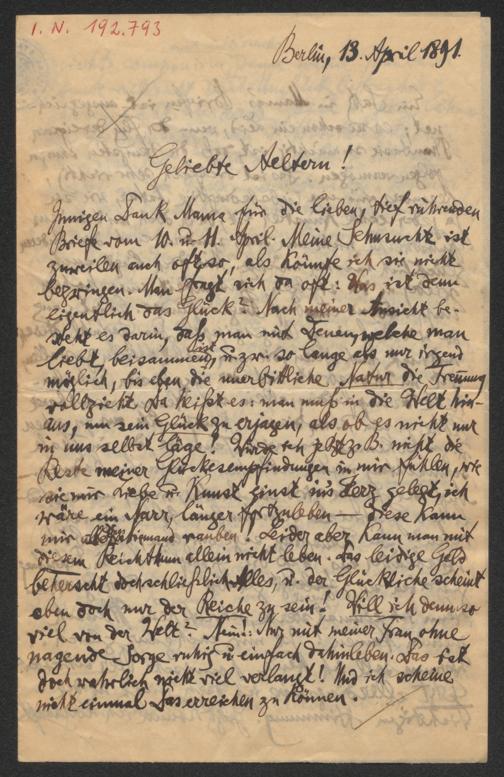 I. N. 192.793
Berlin, 13. April 1891.
Geliebte Aeltern!
Innigen Dank Mama für die lieben, tief rührenden
Briefe vom 10. u. 11. April. Meine Sehnsucht ist
zuweilen auch oft so, als könnte ich sie nicht
bezwingen. Man fragt sich da oft: Was ist denn
eigentlich das Glück? Nach meiner Ansicht be-
steht es darin, daß man mit Denen, welche man
liebt, beisammen ist, u. zw. so lange als nur irgend
möglich, bis eben die unerbittliche Natur die Trennung
vollzieht. Da heißt es: man muß in die Welt hin-
aus, um sein Glück zu erjagen, als ob es nicht nur
in uns selbst läge! Würde ich jetzt z. B. nicht die
Reste meiner Glücksempfindungen in mir fühlen, wie
sie mir Liebe u. Kunst einst in's Herz gelegt, ich
wäre ein Narr, länger fortzuleben — Diese kann
mir niemand rauben. Leider aber kann man mit
diesem Reichthum allein nicht leben. Das leidige Geld
beherscht doch schließlich Alles, u. der Glückliche scheint
eben doch nur der Reiche zu sein! Will ich denn so
viel von der Welt? Nein! Nur mit meiner Frau ohne
nagende Sorge ruhig u. einfach dahinleben. Das ist
doch wahrlich nicht viel verlangt! Und ich scheine
nicht einmal Das erreichen zu können.